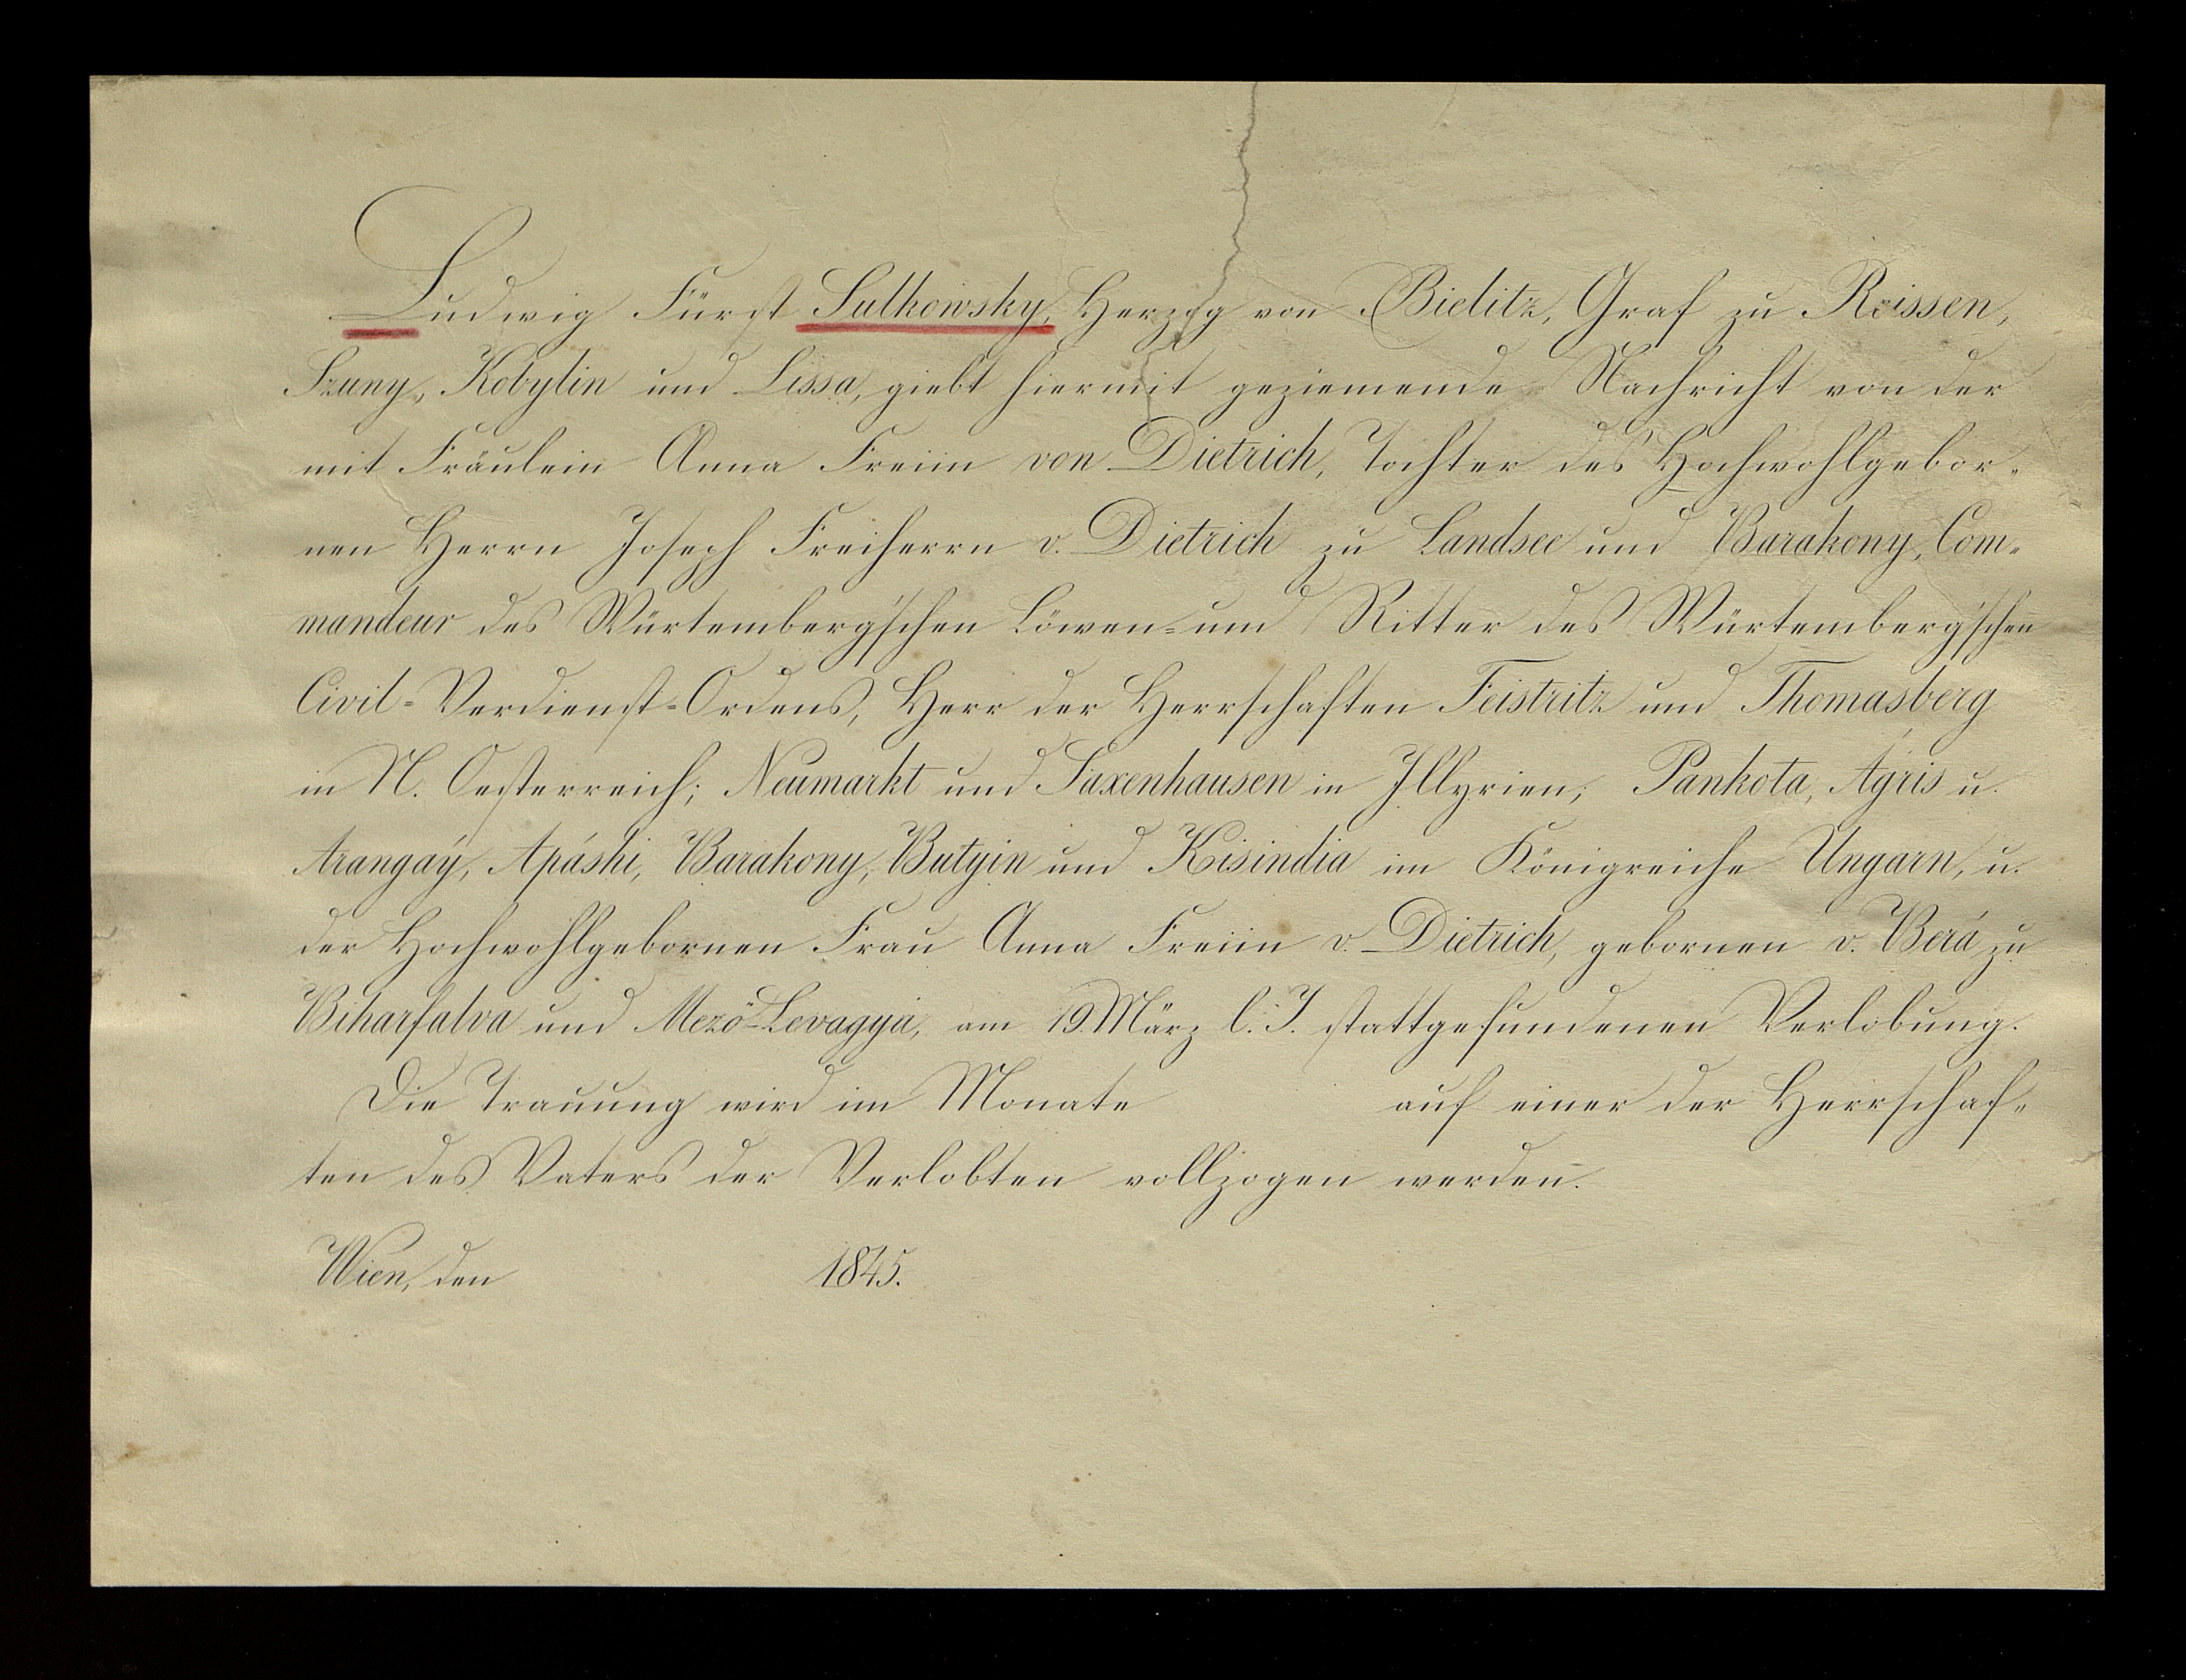 Ludwig Fürst Sulkowsky, Herzog von Bielitz, Graf zu Reissen,
Szuny, Kobylin und Lissa, giebt hiermit geziemende Nachricht von der
mit Fräulein Anna Freiin von Dietrich, Tochter des Hochwohlgebor-
nen Herrn Joseph Freiherrn v. Dietrich zu Landsee und Barakony, Com-
mandeur des Würtemberg'schen Löwen- und Ritter des Würtemberg'schen
Civil-Verdienst-Ordens, Herr der Herrschaften Feistritz und Thomasberg
in N. Oesterreich; Neumarkt und Saxenhausen in Illyrien; Pankota, Agris u.
Arangaý, Apáshi, Barakony, Butyin und Kisindia im Königreiche Ungarn, u.
der Hochwohlgebornen Frau Anna Freiin v. Dietrich, gebornen v. Berá zu
Biharfalva und Mezö-Levagya, am 19. März l. J. stattgefundenen Verlobung.
Die Trauung wird im Monate auf einer der Herrschaf-
ten des Vaters der Verlobten vollzogen werden.
Wien, den 1845.